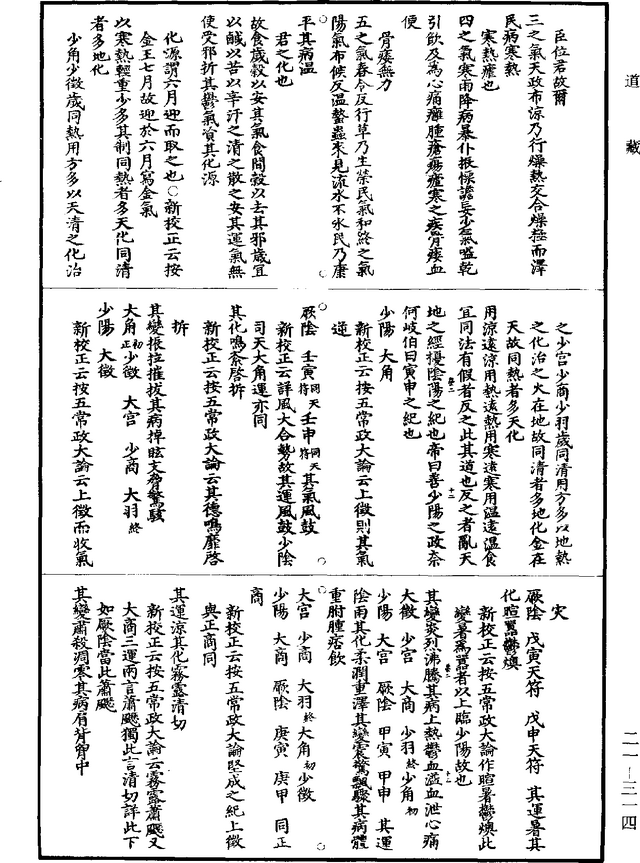 臣位君故爾
三之氣天政布涼乃行燥熱交合燥極而澤
民病寒熱
寒熱瘧也
四之氣寒雨降病暴仆振慄譫妄少氣嗌乾
引飲及為心痛癰腫瘡瘍瘧寒之疾骨痿血
便
骨痿無力
五之氣春令反行草乃生榮民氣和終之氣
陽氣布候反溫蟄蟲來見流水不冰民乃康
平其病溫
君之化也
故食歲穀以安其氣食間穀以去其邪歲宜
以鹹以苦以辛汗之清之散之安其運氣無
使受邪折其鬱氣資其化源
化源謂六月迎而取之也○新校正云按
金王七月故迎於六月寫金氣
以寒熱輕重少多其制同熱者多天化同清
者多地化
少角少徵歲同熱用方多以天清之化治
之少宮少商少羽歲同清用方多以地熱
之化治之火在地故同清者多地化金在
天故同熱者多天化
用涼遠涼用熱遠熱用寒遠寒用溫遠溫食
宜同法有假者反之此其道也反之者亂天
地之經擾陰陽之紀也帝曰善少陽之政奈
何岐伯曰寅申之紀也
少陽 大角
新校正云按五常政大論云上徵則其氣
逆
厥陰 壬寅同天符壬申同天符其氣風鼓
新校正云詳風火合勢故其運風鼓少陰
司天大角運亦同
其化鳴紊啓拆
新校正云按五常政大論云其德鳴靡啓
拆
其變振拉摧拔其病掉眩支脅驚駭
大角初正少徵 大宮 少商 大羽終
少陽 大徵
新校正云按五常政大論云上徵而收氣
灾
厥陰 戊寅天符 戊申天符 其運暑其
化暄囂鬱燠
新校正云按五常政大論作暄暑鬱燠此
變暑為囂者以上臨少陽故也
其變炎烈沸騰其病上熱鬱血溢血泄心痛
大徵 少宮 大商 少羽終 少角初
少陽 大宮 厥陰 甲寅 甲申 其運
陰雨其化柔潤重澤其變震驚飄驟其病體
重胕腫痞飲
大宮 少商 大羽終 大角初 少徵
少陽 大商 厥陰 庚寅 庚申 同正
商
新校正云按五常政大論堅成之紀上徵
與正商同
其運涼其化霧露清切
新校正云按五常政大論云霧露蕭飋又
大商三運兩言蕭飋獨此言清切詳此下
如厥陰當此蕭飋
其變肅殺凋零其病肩背胷中
道藏
二一—三一四